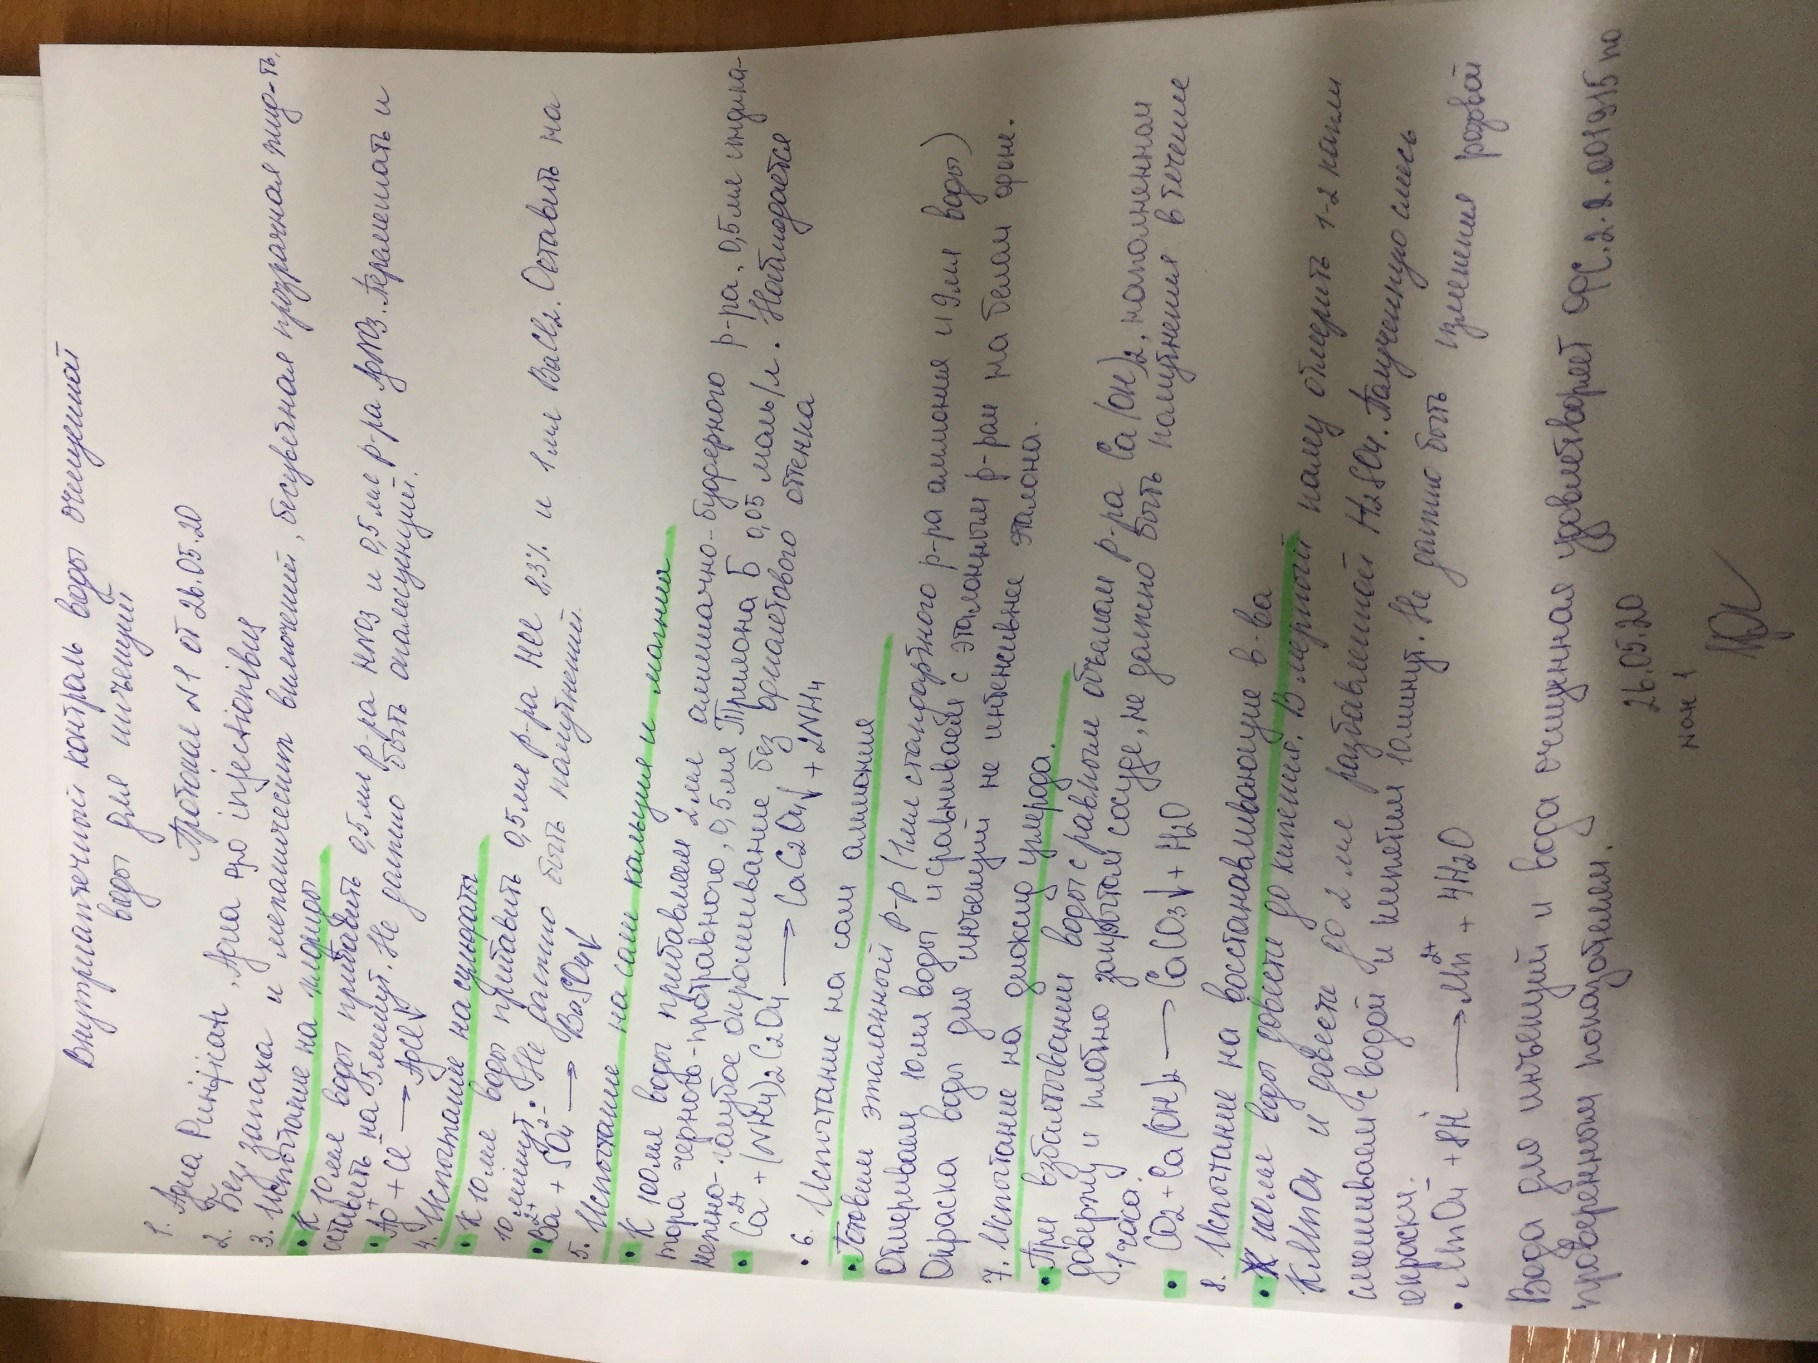 Внутриаптечный контроль воды очищеной
воды для инъекций
Протокол №1 от 26.05.20
1. Aqua Purificata, Aqua pro injectionibus
2. Без запаха и механических включений, бесцветная прозрачная жид-ть.
3. Испытание на хлориды
• К 10 мл воды прибавить 0,5 мл р-ра HNO3 и 0,5 мл р-ра AgNO3. Перемешать и
оставить на 5 минут. Не должно быть опалесцунций.
• Ag+ + Cl- → AgCl↓
4. Испытание на сульфаты
• К 10 мл воды прибавить 0,5 мл р-ра HCl 8,3% и 1 мл BaCl2. Оставить на
10 минут. Не должно быть помутнений.
• Ba2+ + SO42- → BaSO4↓
5. Испытание на соли кальция и магния
• К 100 мл воды прибавляем 2 мл аммиачно-буферного р-ра, 0,5 мл индика-
тора черного-протравного, 0,5 мл Трилона Б 0,05 моль/л. Наблюдается
нежно-голубое окрашивание без фиолетового оттенка
• Ca2+ + (NH4)2C2O4 → CaC2O4↓ + 2NH4
• 6. Испытание на соли аммония
• Готовим эталонный р-р (1 мл стандартного р-ра аммония и 9 мл воды)
Отмериваем 10 мл воды и сравниваем с эталонным р-ром на белом фоне.
Окраска воды для инъекций не интенсивнее эталона.
7. Испытание на диоксид углерода.
• При взбалтывании воды с равным объемом р-ра Ca(OH)2, наполненном
доверху и плотно закрытом сосуде, не должно быть помутнения в течение
1 часа.
• CO2 + Ca(OH)2 → CaCO3↓ + H2O
8. Испытание на восстанавливающие в-ва
• воды довести до кипения. В мерный колбу отмерить 1-2 капли
KMnO4 и довести до 2 мл разбавленной H2SO4. Полученную смесь
смешиваем с водой и кипятим 10 минут. Не должно быть изменения розовой
окраски.
• MnO4- + 8H+ → Mn2+ + 4H2O
Вода для инъекций и вода очищенная удовлетворяет ФС.2.2.0019.15 по
проверенном показателем.
26.05.20
№ 1